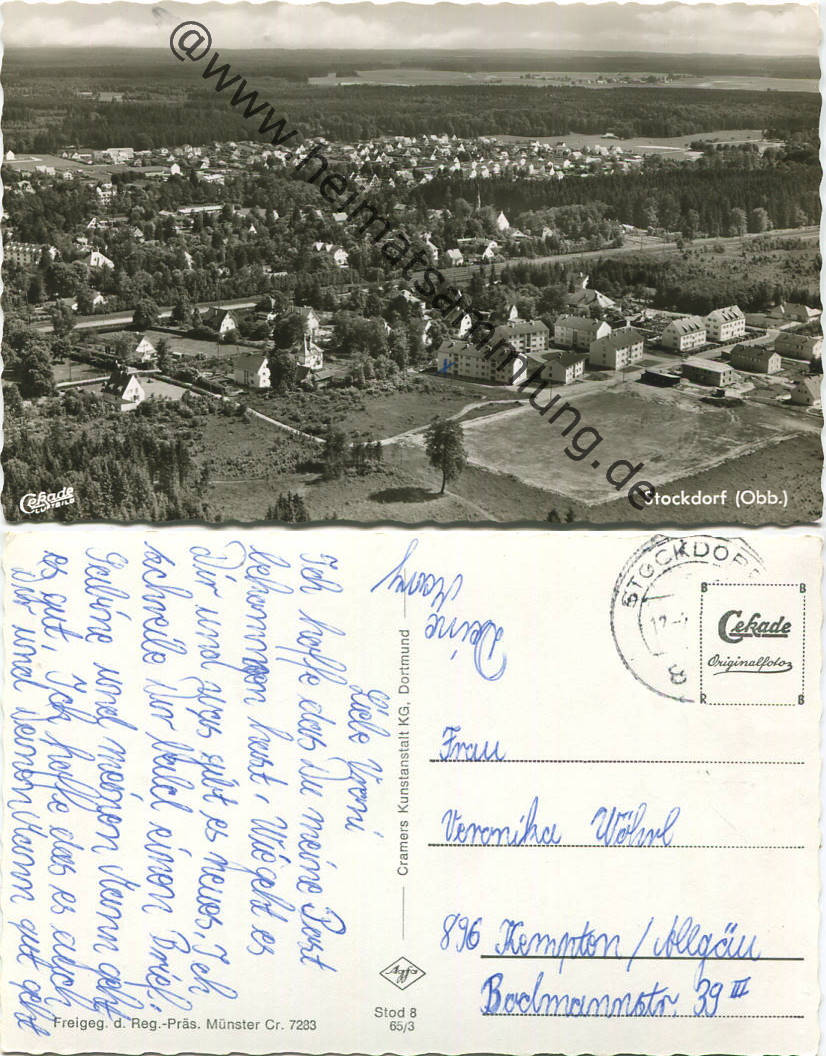 @www.heimatsammlung.de
Cekade
LUFTBILD
Stockdorf (Obb.)
Liebe Vroni
Ich hoffe das Du meine Post
bekommen hast, Wiegeht es
Dir und was gibt es neues, Ich
schreibe Dir bald einen Brief,
Sabine und meinen Mann geht
es gut, Ich hoffe das es auch
Dir und deinen Mann gut geht
Deine
Cramers Kunstanstalt KG, Dortmund
Agfa
Stod 8
65/3
Freigeg. d. Reg.-Präs. Münster Cr. 7283
STOCKDORF
B B
Cekade
Originalfoto
R B
Frau
Veronika Wöhrl
896 Kempten/Allgäu
Bodmannstr. 39 III